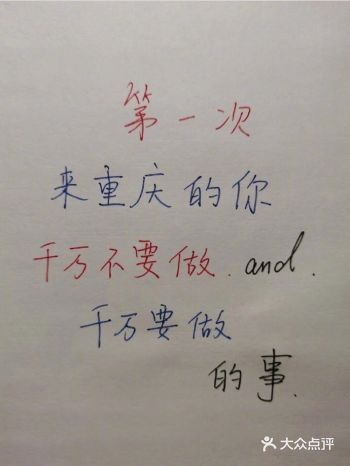 第一次
来重庆的你
千万不要做.and.
千万要做
的事.
大众点评